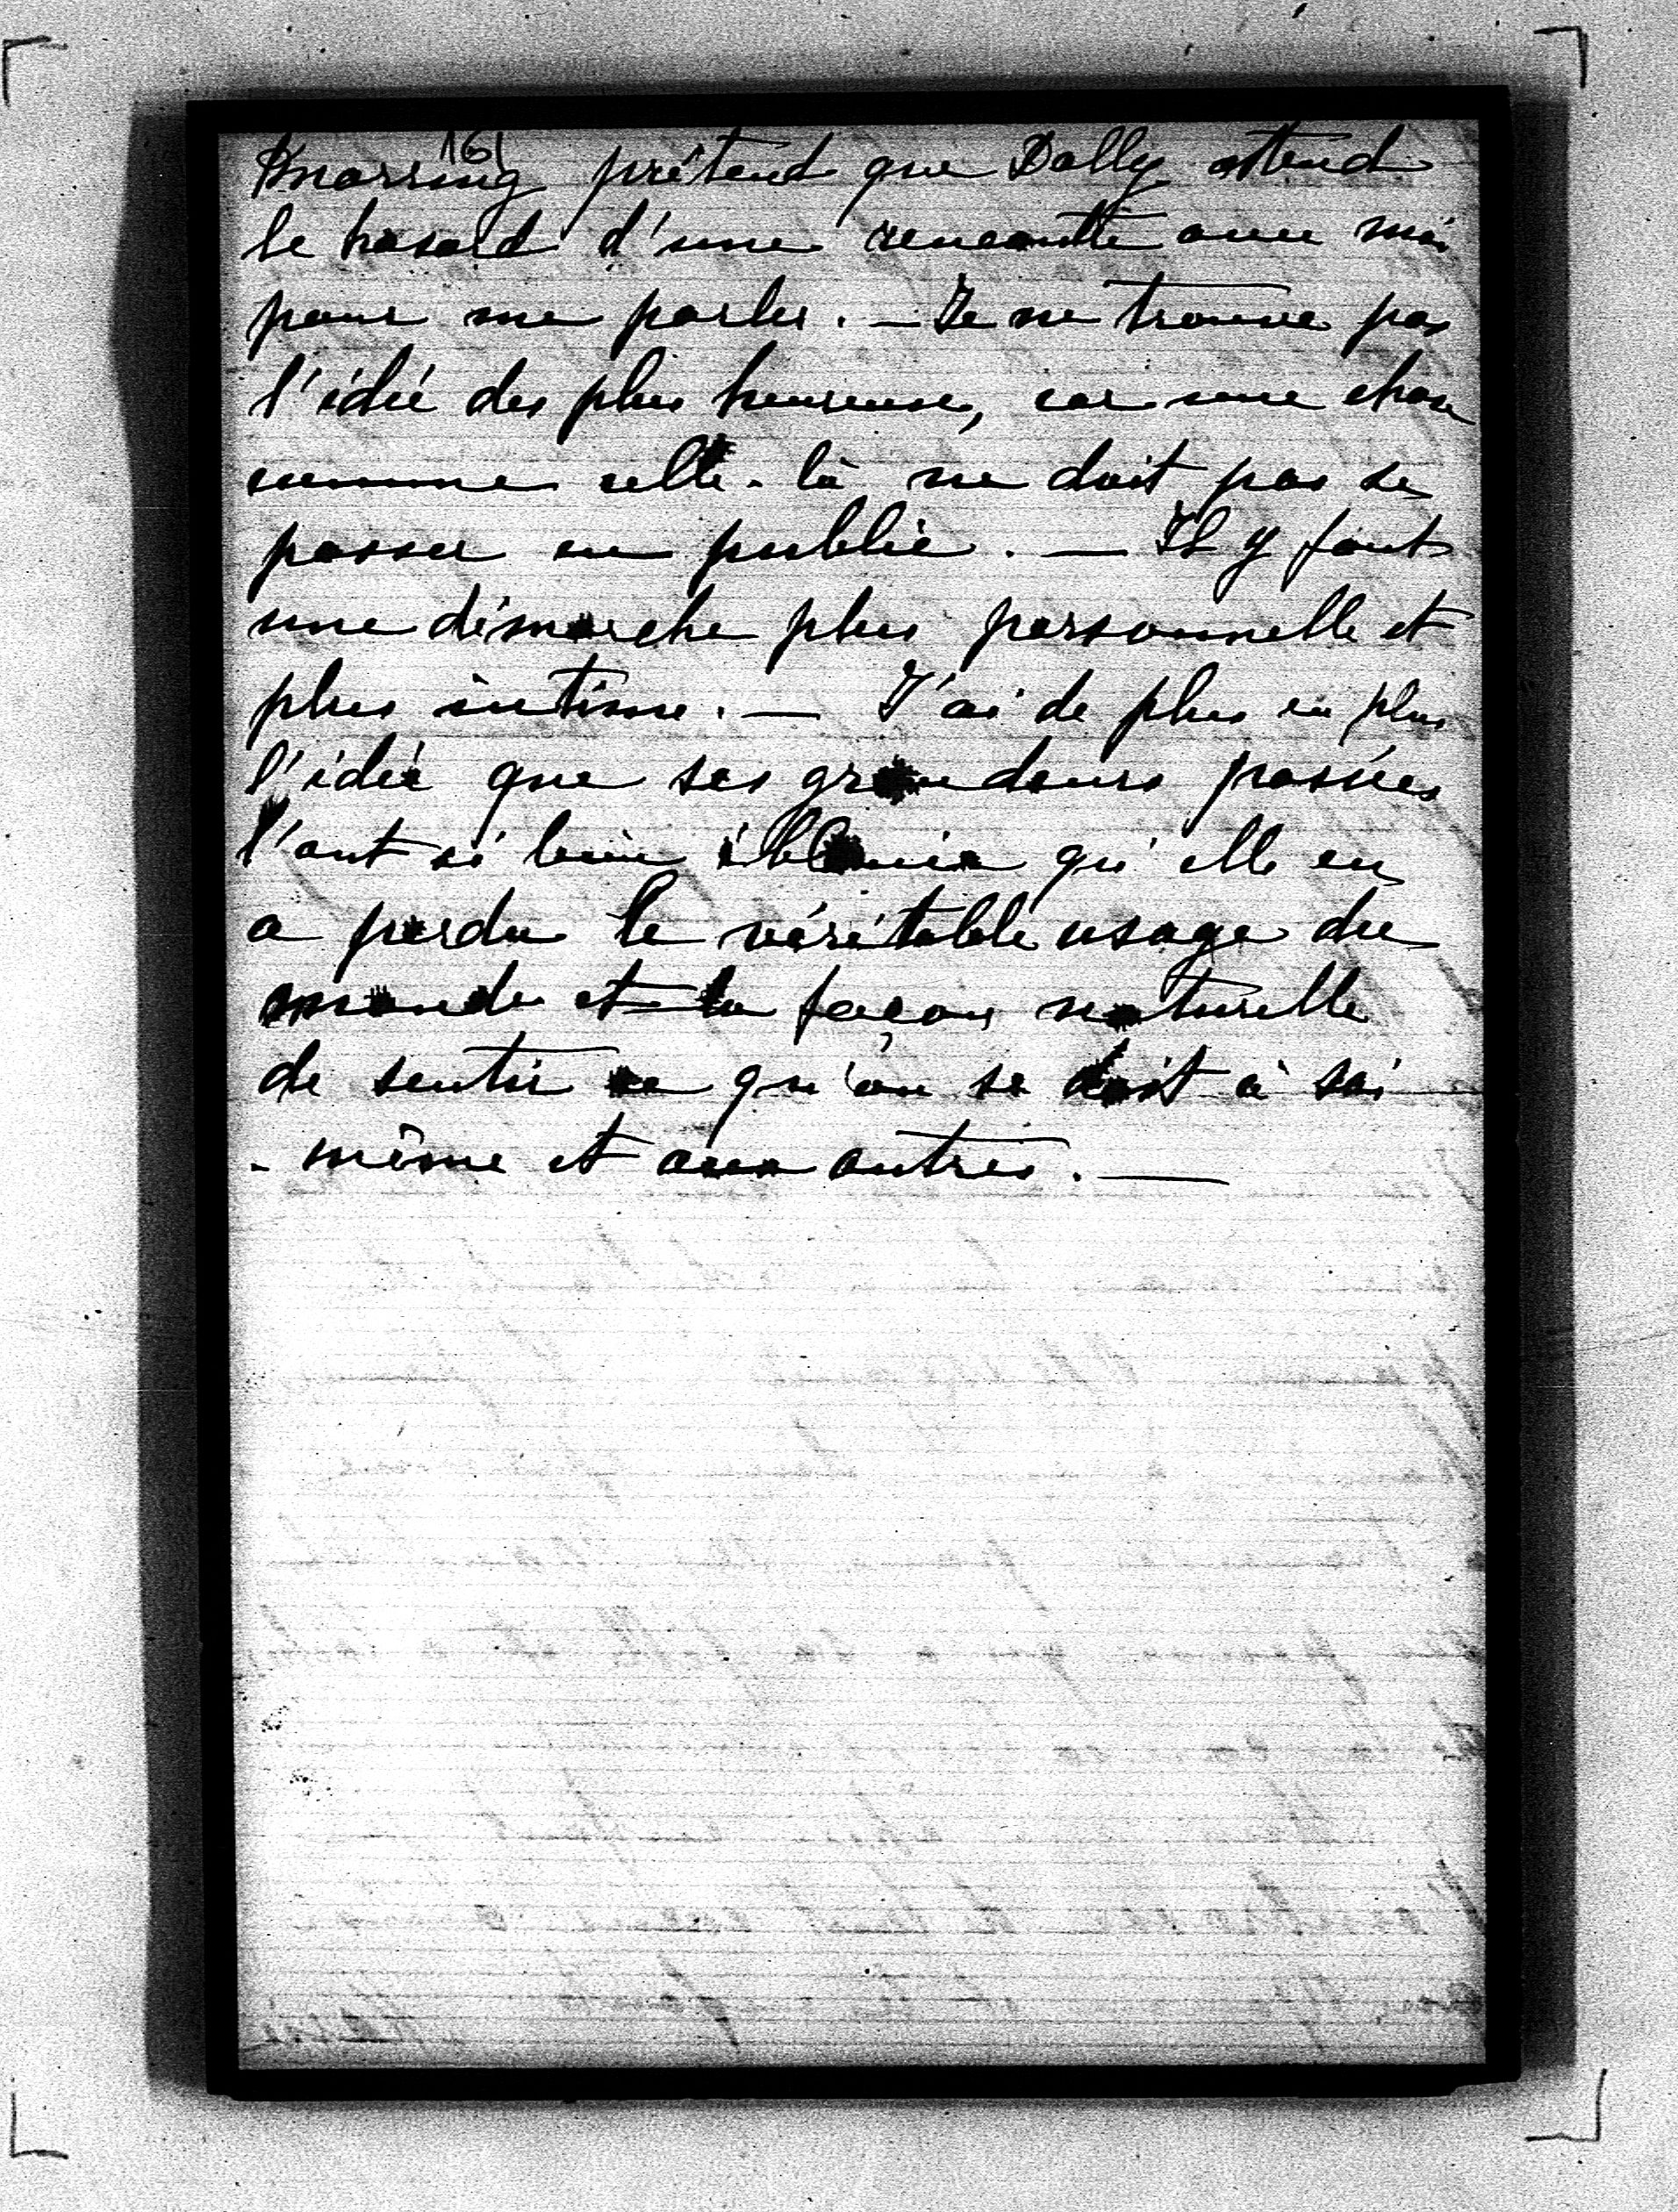 161
Knorring prétend que Dolly attend
le hasard d'une rencontre avec moi
pour me parler. — Je ne trouve pas
l'idée des plus heureuse, car une chose
comme celle-là ne doit pas se
passer en public. — Il y faut
une démarche plus personnelle et
plus intime. — J'ai de plus en plus
l'idée que ses grandeurs passées
l'ont si bien éblouie qu'elle en
a perdu le véritable usage du
monde et la façon naturelle
de sentir ce qu'on se doit à soi
-même et aux autres. —